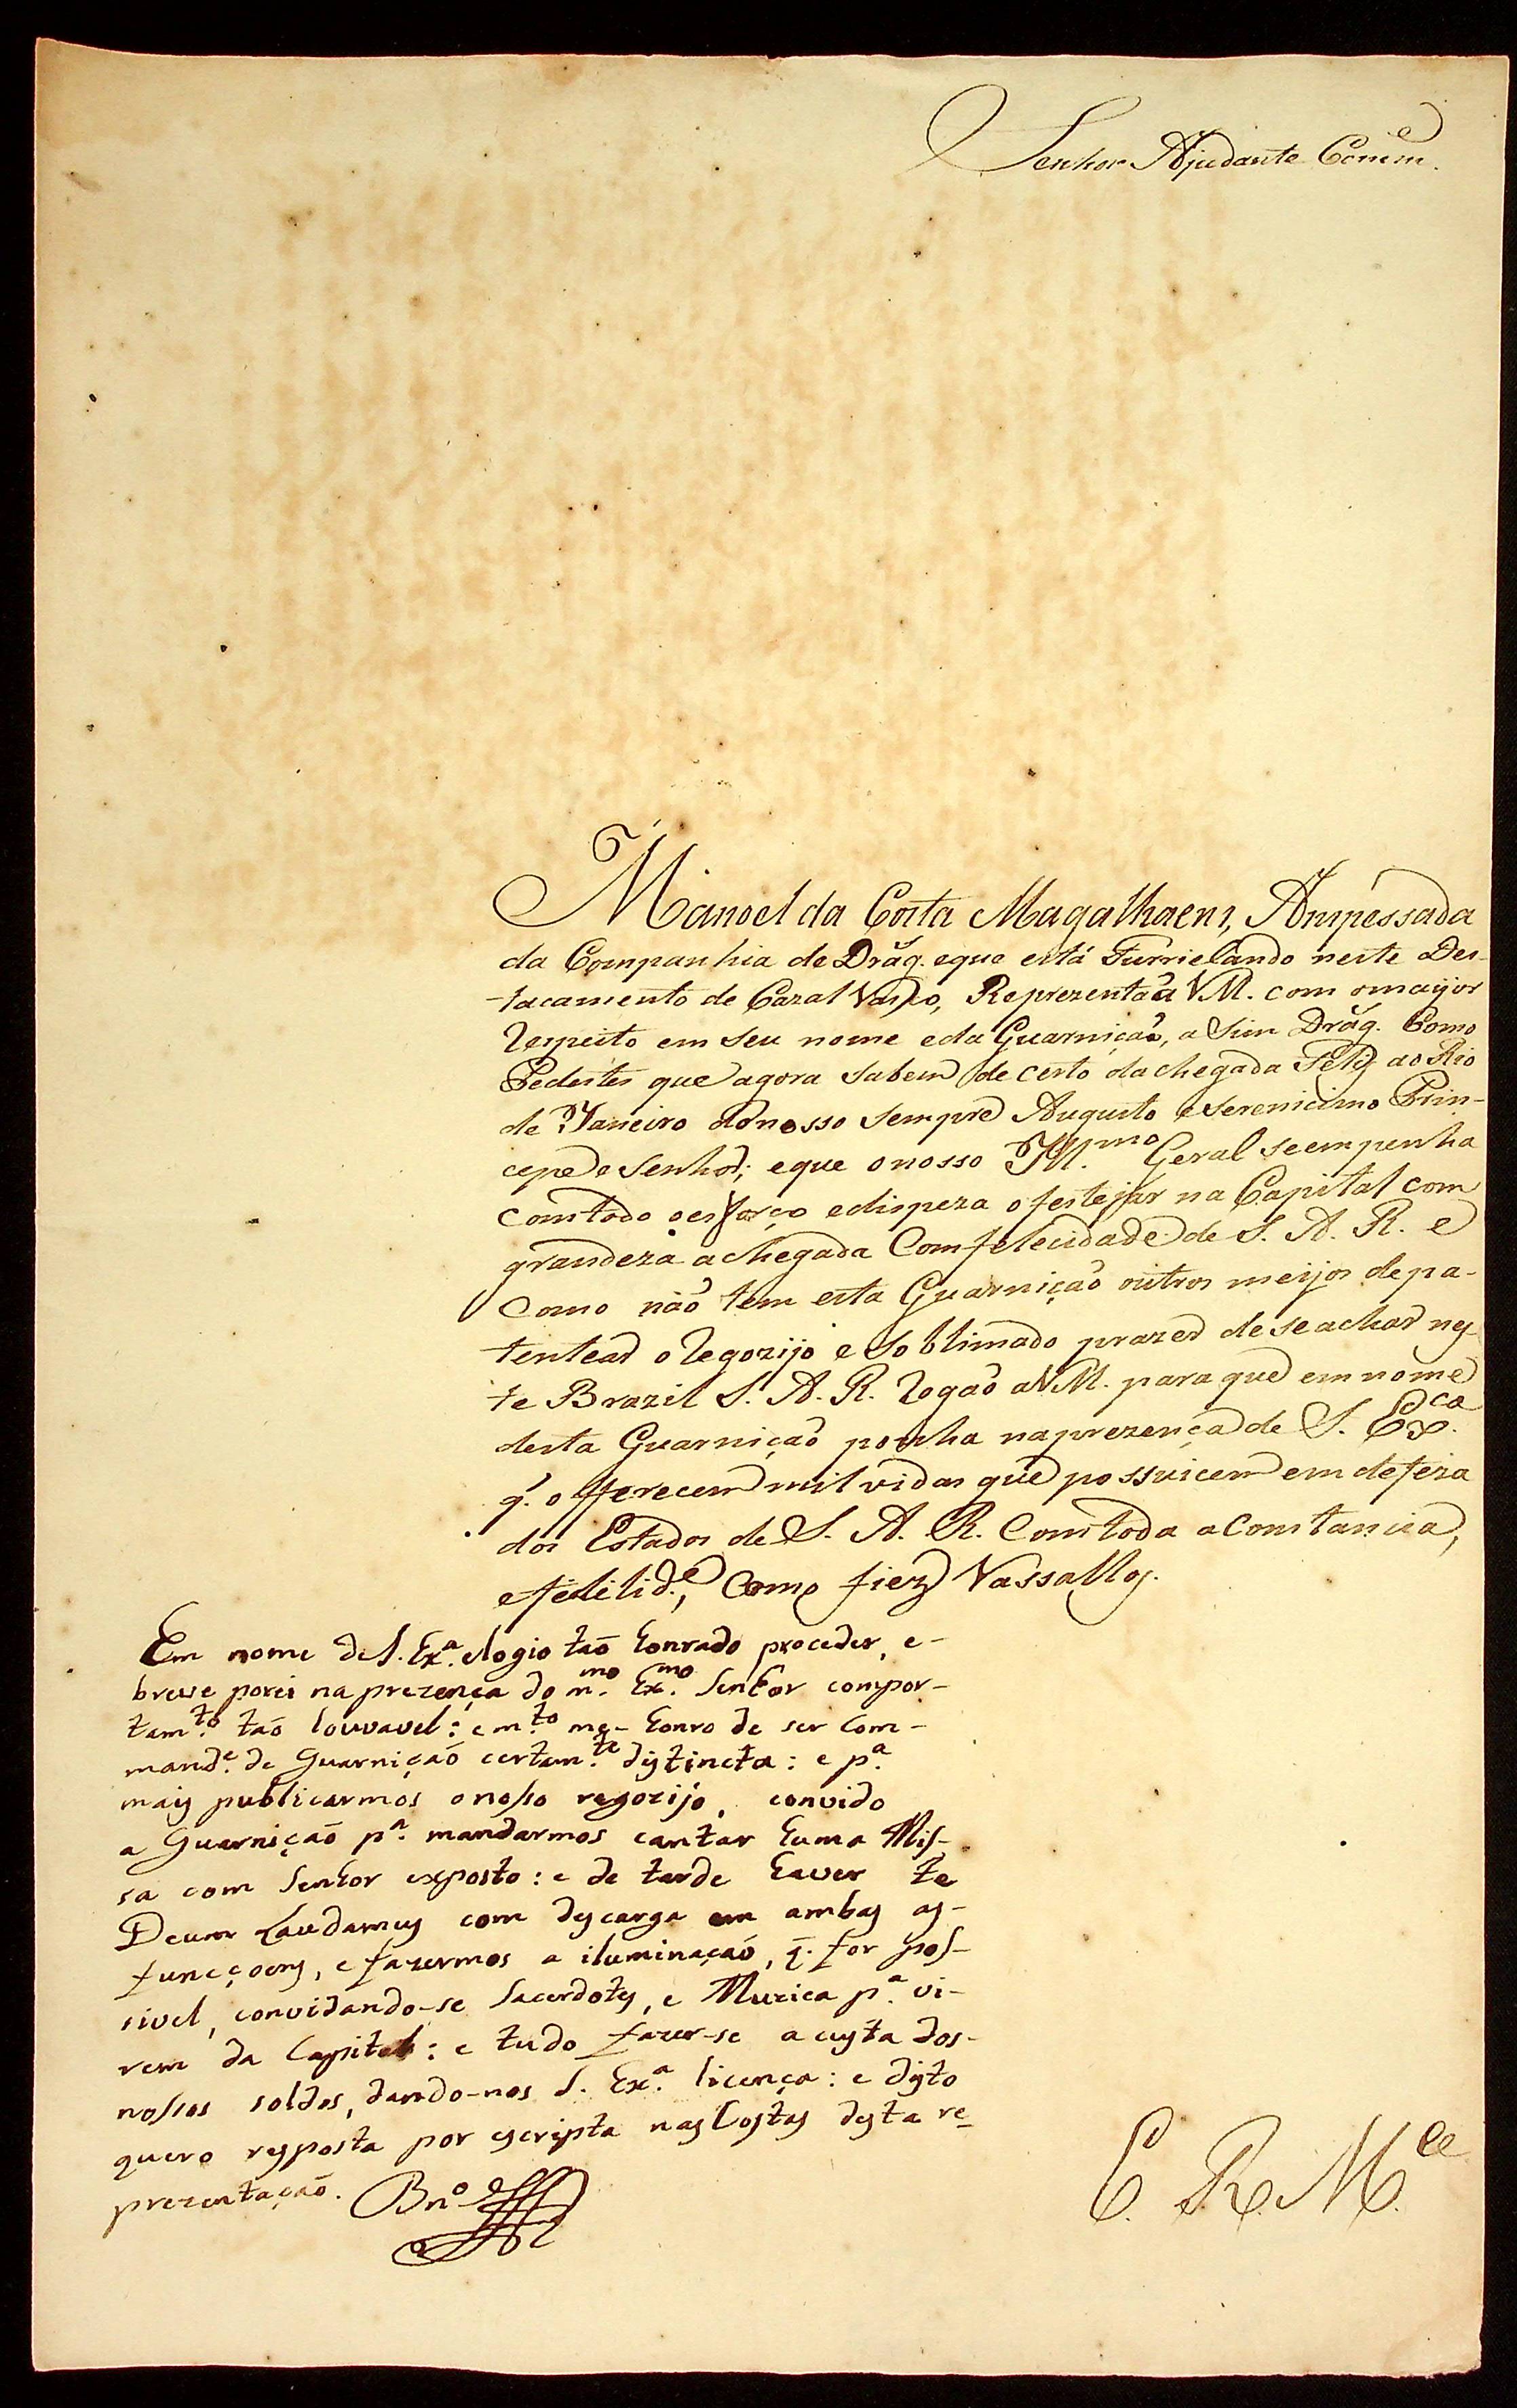 Senhor Ajudante Comm.e
Manoel da Costa Magalhaens, Anspessada
da Companhia de Drag. eque está Furrielando neste Des-
tacamento de Cazal Vasco, Reprezenta a VM. com omayor
respeito em seu nome eda Guarnição, a Sim Drag. Como
Pedestes que agora Sabem de certo dachegada Feliz ao Rio
de Janeiro donosso Sempre Augusto eSerenicimo Prin-
cepe e Senhor; eque onosso Ill.mo Geral seempenha
comtodo oesforço edispeza ofestejar na Capital com
grandeza achegada Comfelecidade de S. A. R. e
Como não tem esta Guarnição outros meijos depa-
tentear oregozijo e Soblimado prazer deseachar nes-
te Brazil S. A. R. rogão aVM. paraque em nome
desta Guarnição ponha naprezença de S. Ex.ca
q. offerecem mil vidas que possuicem em defeza
dos Estados de S. A. R. Comtoda aConstancia,
efidilid.e, Como fiez Vassallos.
Em nome de S. Ex.a elogio taõ honrado proceder, e-
breve porei na prezença do m.mo Ex.mo Senhor compor-
tam.to taõ louvavel: e m.to me- honro de ser Com-
mand.e de Guarniçaõ certam.te distincta: e p.a
mais publicarmos onosso regozijo, convido
a Guarniçaõ p.a mandarmos cantar huma Mis-
sa com Senhor exposto: e de tarde haver te
Deum Laudamus com descarga em ambas as-
funcçoens, e fazermos a iluminaçaõ, q. for pos-
sivel, convidando-se Sacerdotes, e Muzica p.a vi-
rem da Capital: e tudo fazer-se a custa dos-
nossos soldos, dando-nos S. Ex.a licença: e disto
quero resposta por escripta nas Costas desta re-
prezentaçaõ. Bn.o
E. R. M.ce